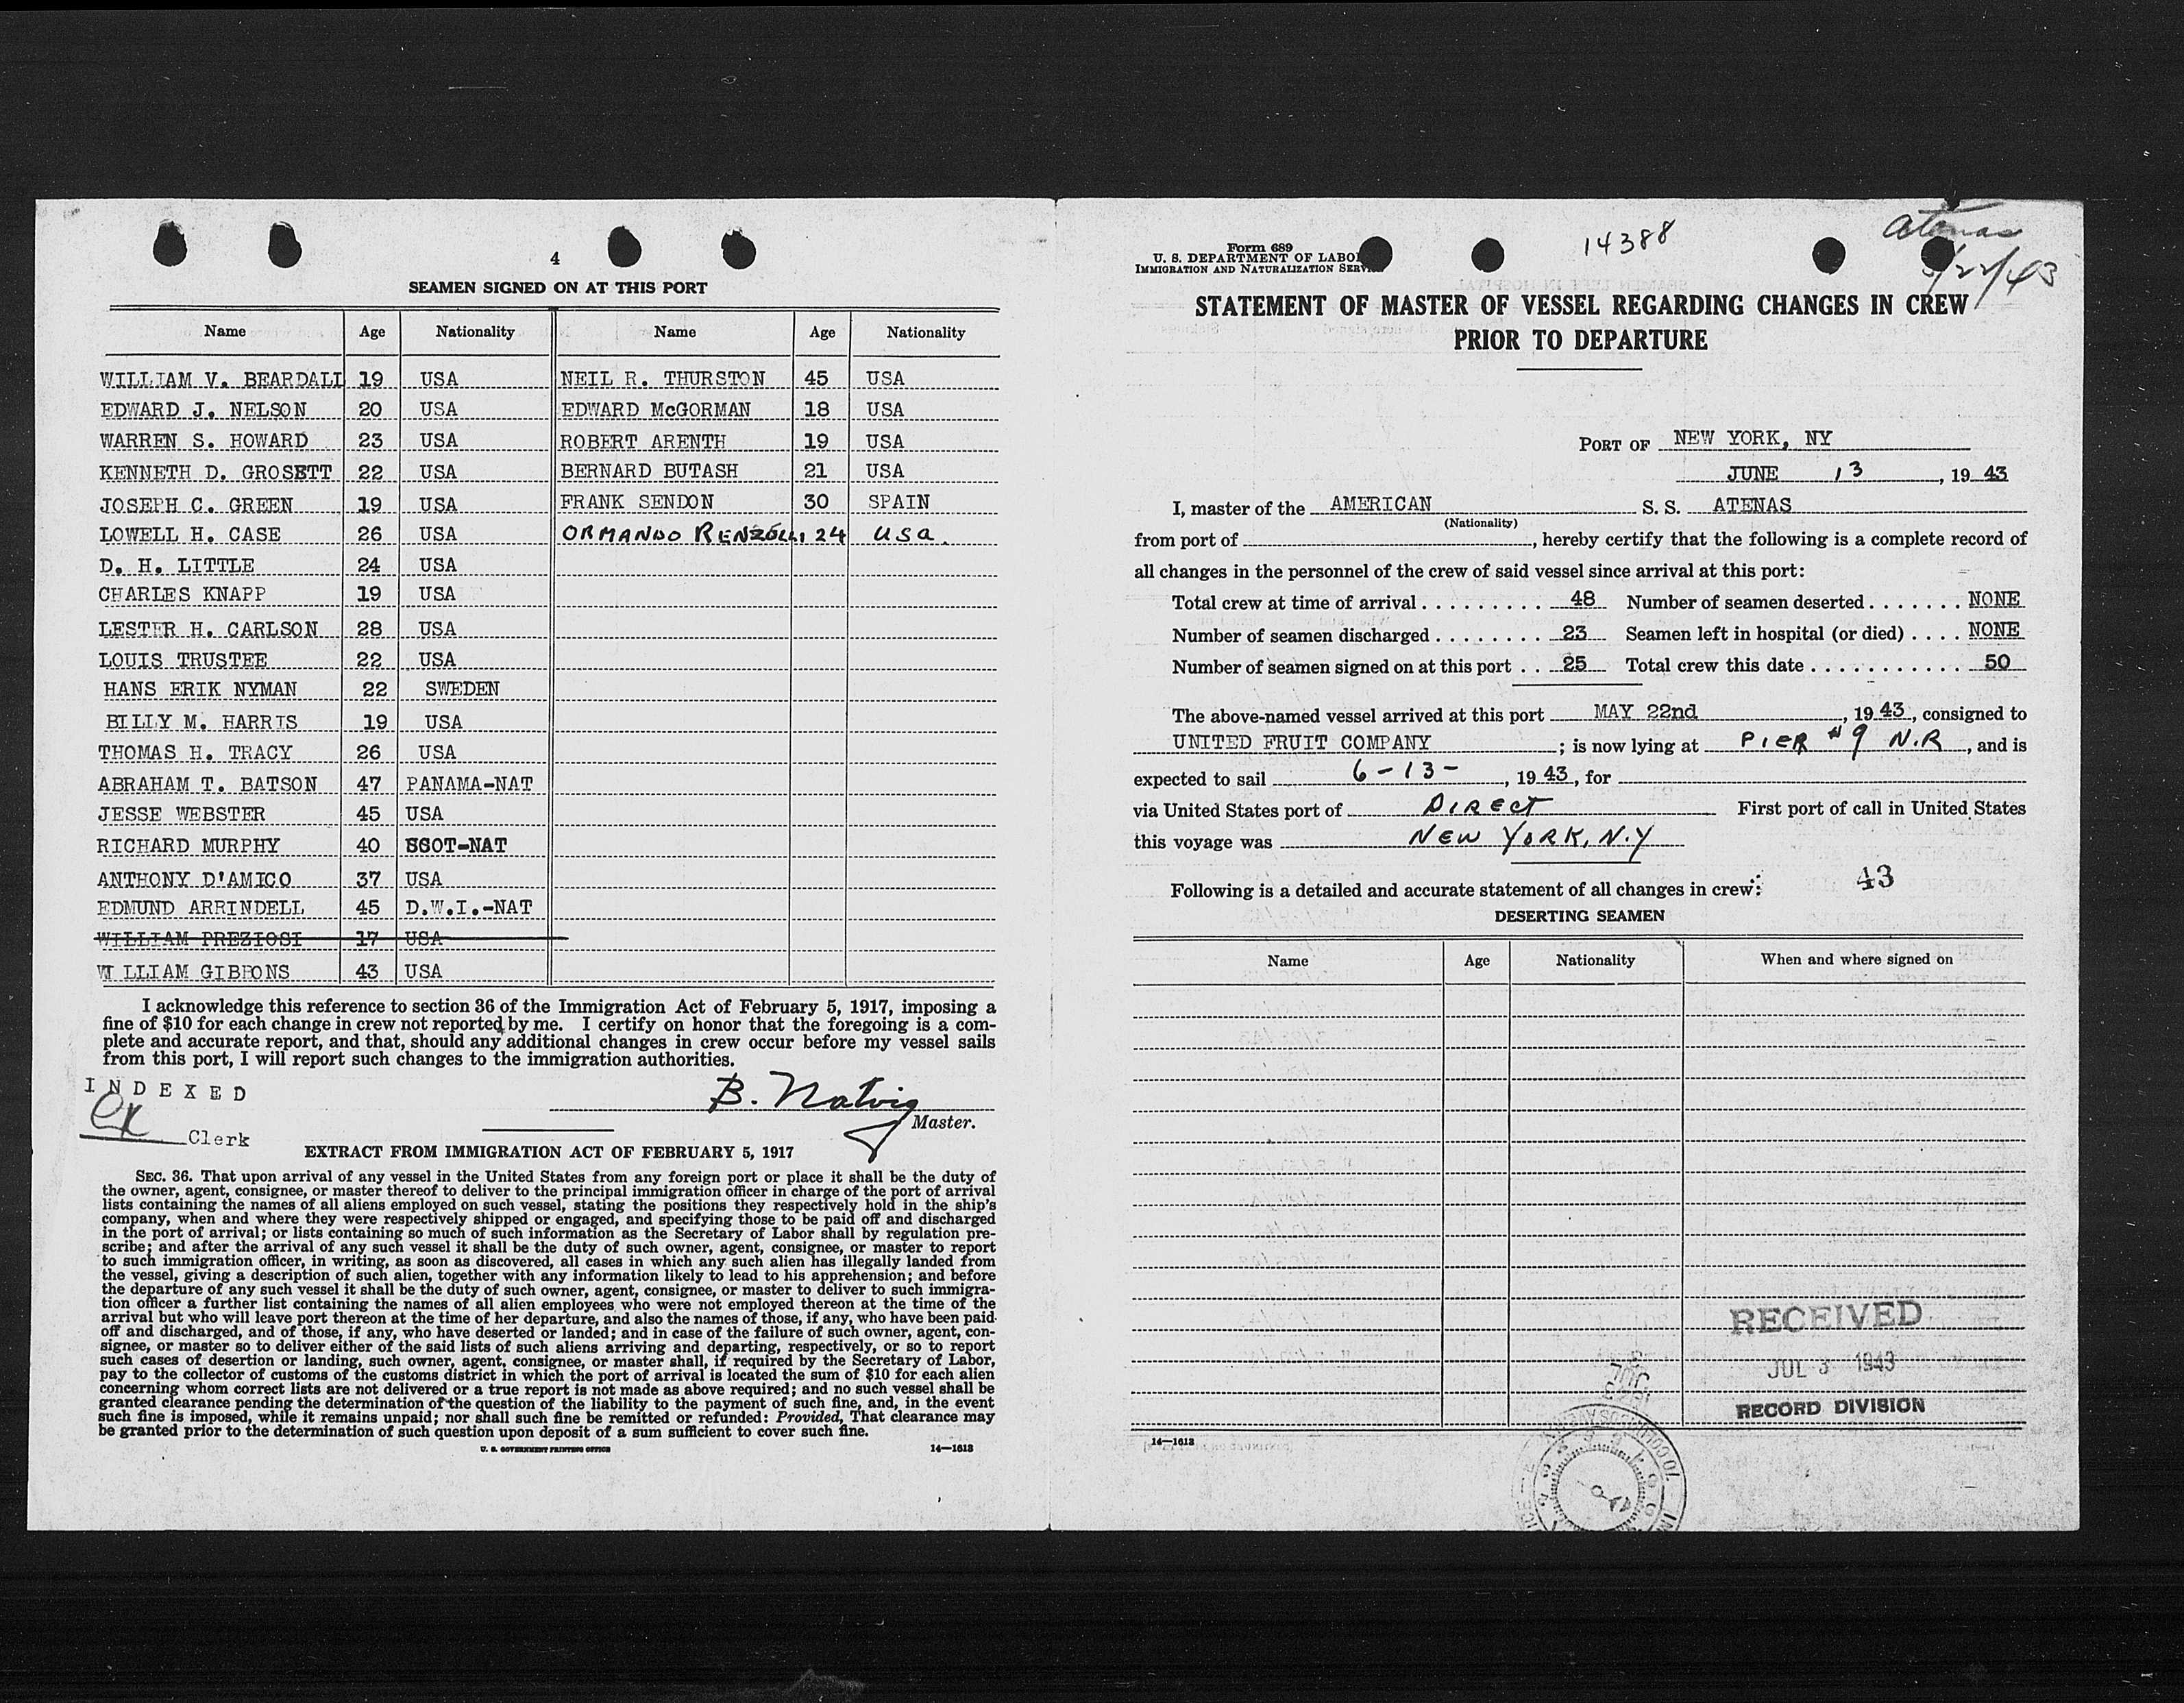 4
SEAMEN SIGNED ON AT THIS PORT
Name Age Nationality Name Age Nationality
WILLIAM V. BEARDALL 19 USA NEIL R. THURSTON 45 USA
EDWARD J. NELSON 20 USA EDWARD McGORMAN 18 USA
WARREN S. HOWARD 23 USA ROBERT ARENTH 19 USA
KENNETH D. GROSETT 22 USA BERNARD BUTASH 21 USA
JOSEPH C. GREEN 19 USA FRANK SENDON 30 SPAIN
LOWELL H. CASE 26 USA ORMANDO RENZULLI 24 USA.
D. H. LITTLE 24 USA
CHARLES KNAPP 19 USA
LESTER H. CARLSON 28 USA
LOUIS TRUSTEE 22 USA
HANS ERIK NYMAN 22 SWEDEN
BILLY M. HARRIS 19 USA
THOMAS H. TRACY 26 USA
ABRAHAM T. BATSON 47 PANAMA-NAT
JESSE WEBSTER 45 USA
RICHARD MURPHY 40 SCOT-NAT
ANTHONY D'AMICO 37 USA
EDMUND ARRINDELL 45 D.W.I.-NAT
WILLIAM PREZIOSI 17 USA
WILLIAM GIBBONS 43 USA
I acknowledge this reference to section 36 of the Immigration Act of February 5, 1917, imposing a
fine of $10 for each change in crew not reported by me. I certify on honor that the foregoing is a com-
plete and accurate report, and that, should any additional changes in crew occur before my vessel sails
from this port, I will report such changes to the immigration authorities.
INDEXED
B. Natvig
Master.
Clerk
EXTRACT FROM IMMIGRATION ACT OF FEBRUARY 5, 1917
SEC. 36. That upon arrival of any vessel in the United States from any foreign port or place it shall be the duty of
the owner, agent, consignee, or master thereof to deliver to the principal immigration officer in charge of the port of arrival
lists containing the names of all aliens employed on such vessel, stating the positions they respectively hold in the ship's
company, when and where they were respectively shipped or engaged, and specifying those to be paid off and discharged
in the port of arrival; or lists containing so much of such information as the Secretary of Labor shall by regulation pre-
scribe; and after the arrival of any such vessel it shall be the duty of such owner, agent, consignee, or master to report
to such immigration officer, in writing, as soon as discovered, all cases in which any such alien has illegally landed from
the vessel, giving a description of such alien, together with any information likely to lead to his apprehension; and before
the departure of any such vessel it shall be the duty of such owner, agent, consignee, or master to deliver to such immigra-
tion officer a further list containing the names of all alien employees who were not employed thereon at the time of the
arrival but who will leave port thereon at the time of her departure, and also the names of those, if any, who have been paid
off and discharged, and of those, if any, who have deserted or landed; and in case of the failure of such owner, agent, con-
signee, or master so to deliver either of the said lists of such aliens arriving and departing, respectively, or so to report
such cases of desertion or landing, such owner, agent, consignee, or master shall, if required by the Secretary of Labor,
pay to the collector of customs of the customs district in which the port of arrival is located the sum of $10 for each alien
concerning whom correct lists are not delivered or a true report is not made as above required; and no such vessel shall be
granted clearance pending the determination of the question of the liability to the payment of such fine, and, in the event
such fine is imposed, while it remains unpaid; nor shall such fine be remitted or refunded: Provided, That clearance may
be granted prior to the determination of such question upon deposit of a sum sufficient to cover such fine.
U. S. GOVERNMENT PRINTING OFFICE 14—1613
Form 689
U. S. DEPARTMENT OF LABOR
IMMIGRATION AND NATURALIZATION SERVICE
14388
Atenas
5/22/43
STATEMENT OF MASTER OF VESSEL REGARDING CHANGES IN CREW
PRIOR TO DEPARTURE
PORT OF NEW YORK, NY
JUNE 13, 1943
I, master of the AMERICAN S. S. ATENAS
(Nationality)
from port of , hereby certify that the following is a complete record of
all changes in the personnel of the crew of said vessel since arrival at this port:
Total crew at time of arrival 48 Number of seamen deserted NONE
Number of seamen discharged 23 Seamen left in hospital (or died) NONE
Number of seamen signed on at this port 25 Total crew this date 50
The above-named vessel arrived at this port MAY 22nd, 1943, consigned to
UNITED FRUIT COMPANY; is now lying at PIER #9 N.R, and is
expected to sail 6-13-, 1943, for
via United States port of DIRECT First port of call in United States
this voyage was NEW YORK, N.Y
Following is a detailed and accurate statement of all changes in crew:
43
DESERTING SEAMEN
Name Age Nationality When and where signed on
RECEIVED
JUL 3 1943
RECORD DIVISION
14—1613